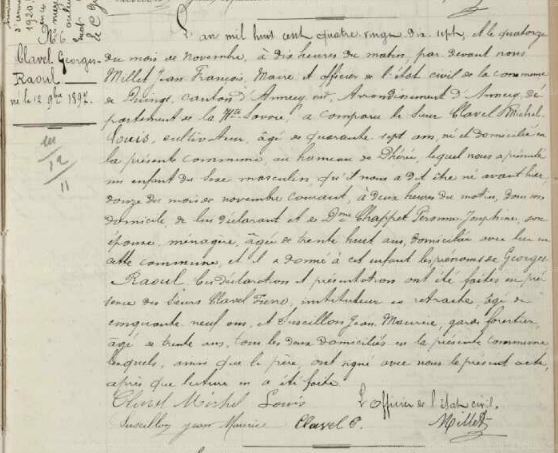 L'an mil huit cent quatre vingt dix sept, et le quatorze
du mois de novembre, à dix heures du matin, par devant nous
Millet Jean François, Maire et officier de l'état civil de la commune
canton d'Annecy nord, Arrondissement d'Annecy, dé
partement de la Hte Savoie, a comparu le sieur Clavel Michel
Louis, cultivateur, âgé de quarante sept ans, né et domicilié en
la présente commune, au hameau de lequel nous a présenté
un enfant du sexe masculin, qu'il nous a dit être né avant hier
douze du mois de novembre courant, à deux heures du matin, dans son
domicile, de lui déclarant et de Dme Chappet Peronne Josephine, son
épouse, ménagère, âgée de trente huit ans, domiciliée avec lui en
cette commune, et il a donné à cet enfant les prénoms de Georges
Raoul. Ces déclaration et présentation ont été faites en pré
sence des sieurs Clavel instituteur en retraite, âgé de
cinquante neuf ans, et Suscillon Jean Maurice, garde forestier,
âgé de trente ans, tous les deux domiciliés en la présente commune
lesquels, ainsi que le père, ont signé avec nous le présent acte,
après que lecture en a été faite.
Clavel Michel Louis
L'officier de l'état civil,
Suscillon jean Maurice
Clavel P.
Millet
1920
No 6
Clavel Georges
Raoul
né le 12 9bre 1897
12
11